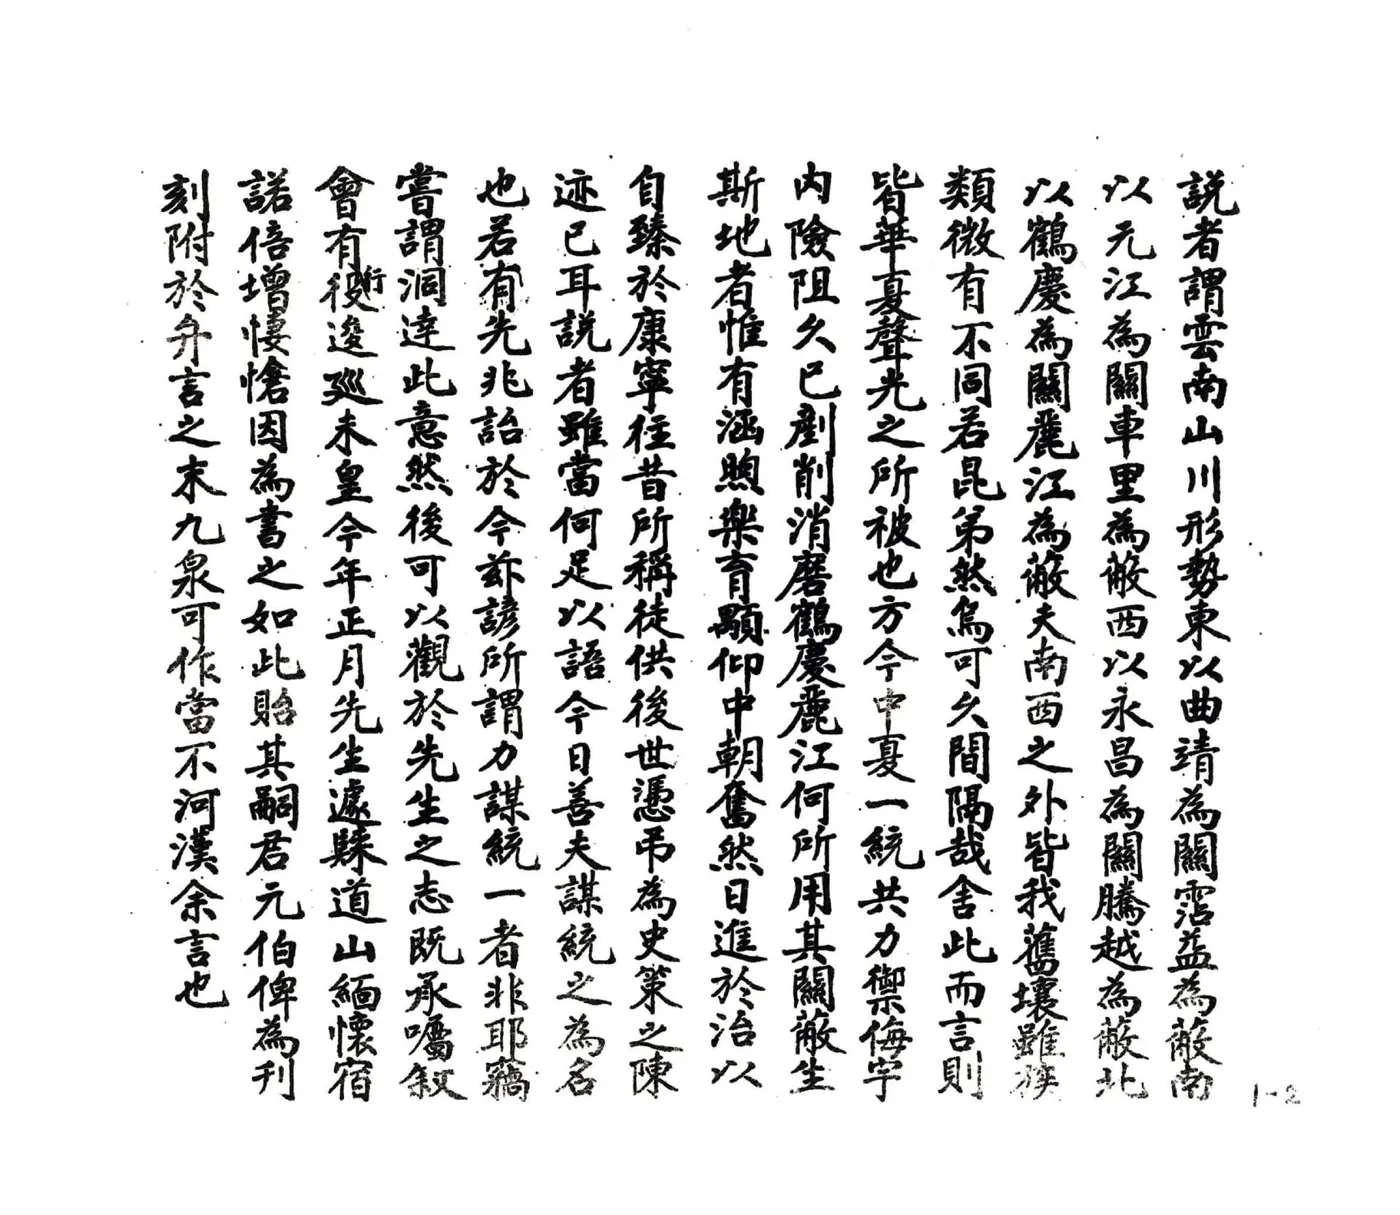 説者謂雲南山川形勢東以曲靖為關霑益為蔽南
以元江為關車里為蔽西以永昌為關騰越為蔽北
以鶴慶為關麗江為蔽夫南西之外皆我舊壤雖族
類微有不同若昆弟然烏可久間隔哉舍此而言則
皆華夏聲光之所被也方今中夏一統共力禦侮宇
内險阻久已剷削消磨鶴慶麗江何所用其關蔽生
斯地者惟有涵煦樂育顒仰中朝奮然日進於治以
自臻於康寧往昔所稱徒供後世憑弔為史策之陳
迹已耳説者雖當何足以語今日善夫謀統之為名
也若有先兆詒於今茲諺所謂力謀統一者非耶竊
嘗謂洞達此意然後可以觀於先生之志既承囑叙
會有行役逡巡未皇今年正月先生遽騄道山緬懷宿
諾倍增悽愴因為書之如此貽其嗣君元伯俾為刊
刻附於弁言之末九泉可作當不河漢余言也
1-2